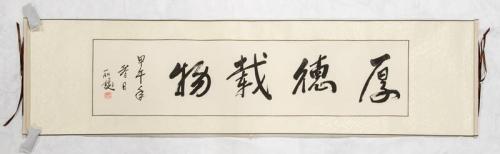 厚德載物
甲午年
冬日